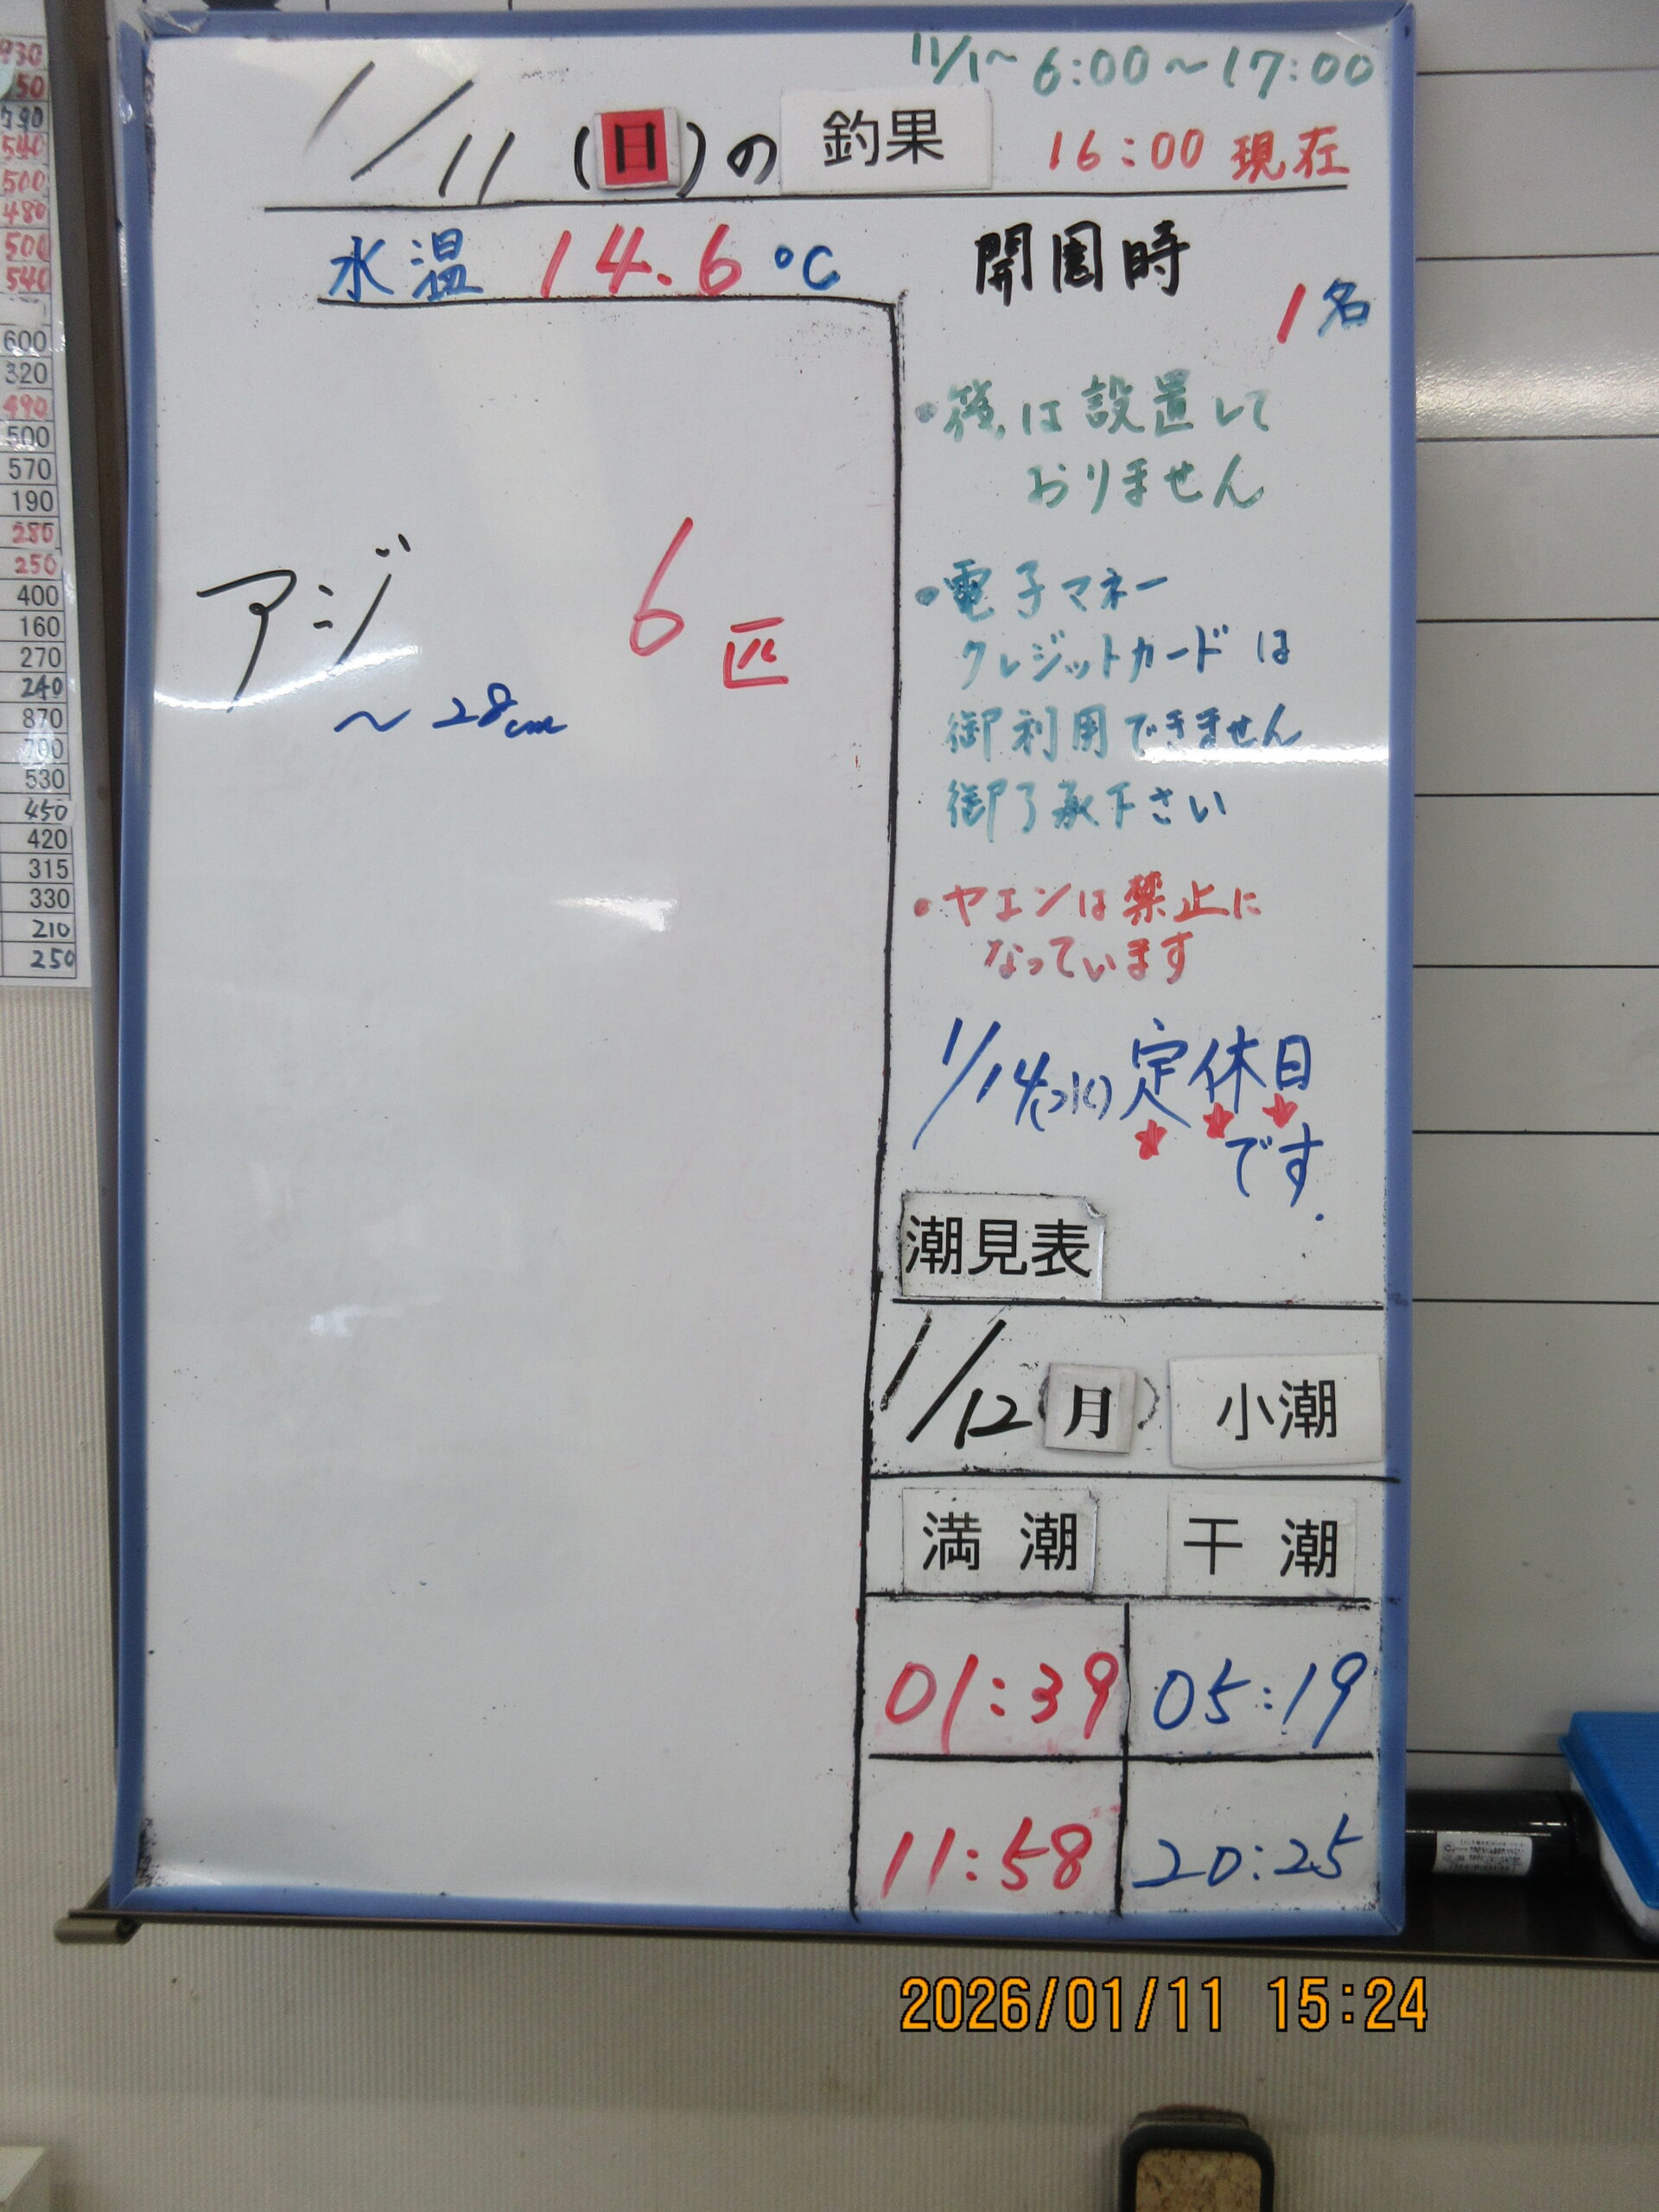 11/1〜 6:00〜17:00
1/11(日)の 釣果 16:00 現在
水温 14.6℃
開園時
1名
アジ 6匹
〜28cm
・後は設置して
おりません
・電子マネー
クレジットカードは
御利用できません
御了承下さい
・ヤエンは禁止に
なっています
1/14(水)定休日
です.
潮見表
1/12(月) 小潮
満潮 干潮
01:39 05:19
11:58 20:25
930
350
790
540
500
480
500
540
600
320
490
500
570
190
280
250
400
160
270
240
870
790
530
450
420
315
330
210
250
2026/01/11 15:24